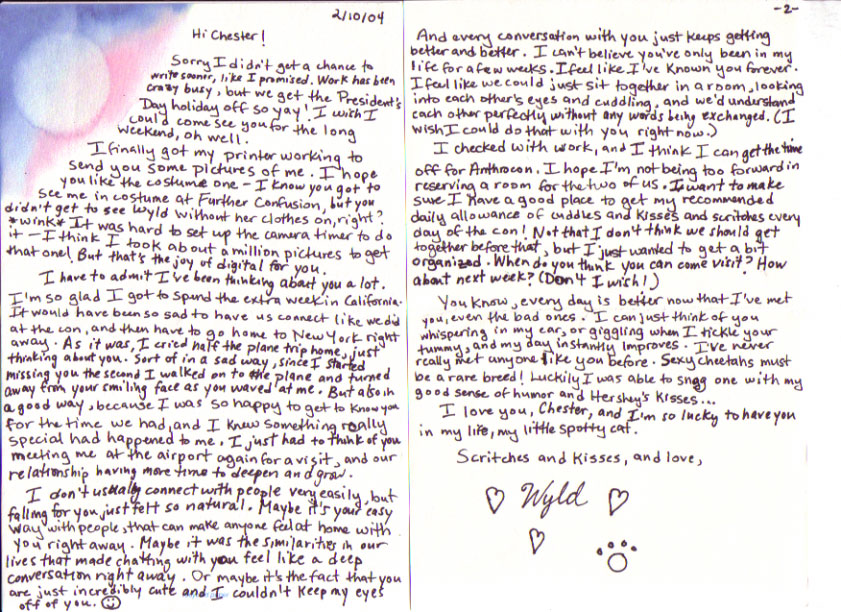 2/10/04
Hi Chester!
Sorry I didn't get a chance to
write sooner, like I promised. Work has been
crazy busy, but we get the President's
Day holiday off so yay! I wish I
could come see you for the long
weekend, oh well.
I finally got my printer working to
send you some pictures of me. I hope
you like the costume one - I know you got to
see me in costume at Further Confusion, but you
didn't get to see Wyld without her clothes on, right?
*wink* It was hard to set up the camera timer to do
it - I think I took about a million pictures to get
that one! But that's the joy of digital for you.
I have to admit I've been thinking about you a lot.
I'm so glad I got to spend the extra week in California.
It would have been so sad to have us connect like we did
at the con, and then have to go home to New York right
away. As it was, I cried half the plane trip home, just
thinking about you. Sort of in a sad way, since I started
missing you the second I walked on to the plane and turned
away from your smiling face as you waved at me. But also in
a good way, because I was so happy to get to know you
for the time we had, and I knew something really
special had happened to me. I just had to think of you
meeting me at the airport again for a visit, and our
relationship having more time to deepen and grow.
I don't usually connect with people very easily, but
falling for you just felt so natural. Maybe it's your easy
way with people, that can make anyone feel at home with
you right away. Maybe it was the similarities in our
lives that made chatting with you feel like a deep
conversation right away. Or maybe it's the fact that you
are just incredibly cute and I couldn't keep my eyes
off of you.
-2-
And every conversation with you just keeps getting
better and better. I can't believe you've only been in my
life for a few weeks. I feel like I've known you forever.
I feel like we could just sit together in a room, looking
into each other's eyes and cuddling, and we'd understand
each other perfectly without any words being exchanged. (I
wish I could do that with you right now.)
I checked with work, and I think I can get the time
off for Anthrocon. I hope I'm not being too forward in
reserving a room for the two of us. I want to make
sure I have a good place to get my recommended
daily allowance of cuddles and kisses and scritches every
day of the con! Not that I don't think we should get
together before that, but I just wanted to get a bit
organized. When do you think you can come visit? How
about next week? (Don't I wish!)
You know, every day is better now that I've met
you, even the bad ones. I can just think of you
whispering in my ear, or giggling when I tickle your
tummy, and my day instantly improves. I've never
really met anyone like you before. Sexy cheetahs must
be a rare breed! Luckily I was able to snag one with my
good sense of humor and Hershey's Kisses...
I love you, Chester, and I'm so lucky to have you
in my life, my little spotty cat.
Scritches and kisses, and love,
Wyld